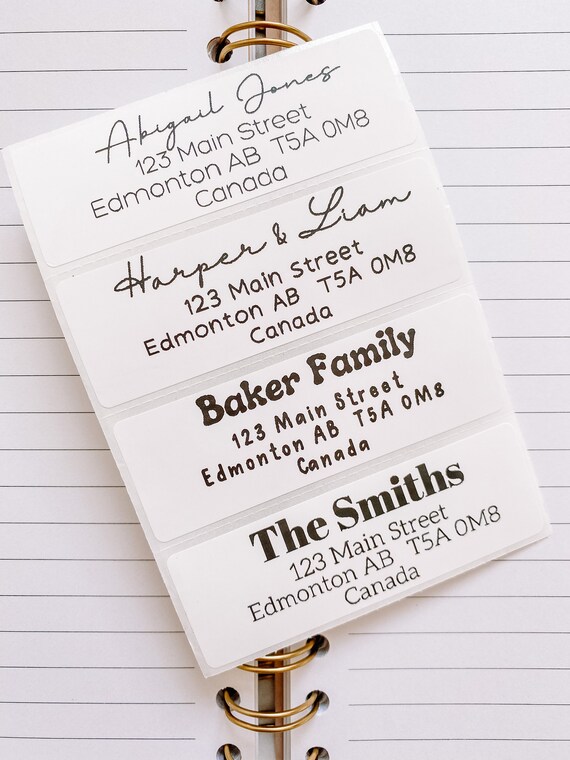 Abigail Jones
123 Main Street
Edmonton AB T5A 0M8
Canada
Harper & Liam
123 Main Street
Edmonton AB T5A 0M8
Canada
Baker Family
123 Main Street
Edmonton AB T5A 0M8
Canada
The Smiths
123 Main Street
Edmonton AB T5A 0M8
Canada